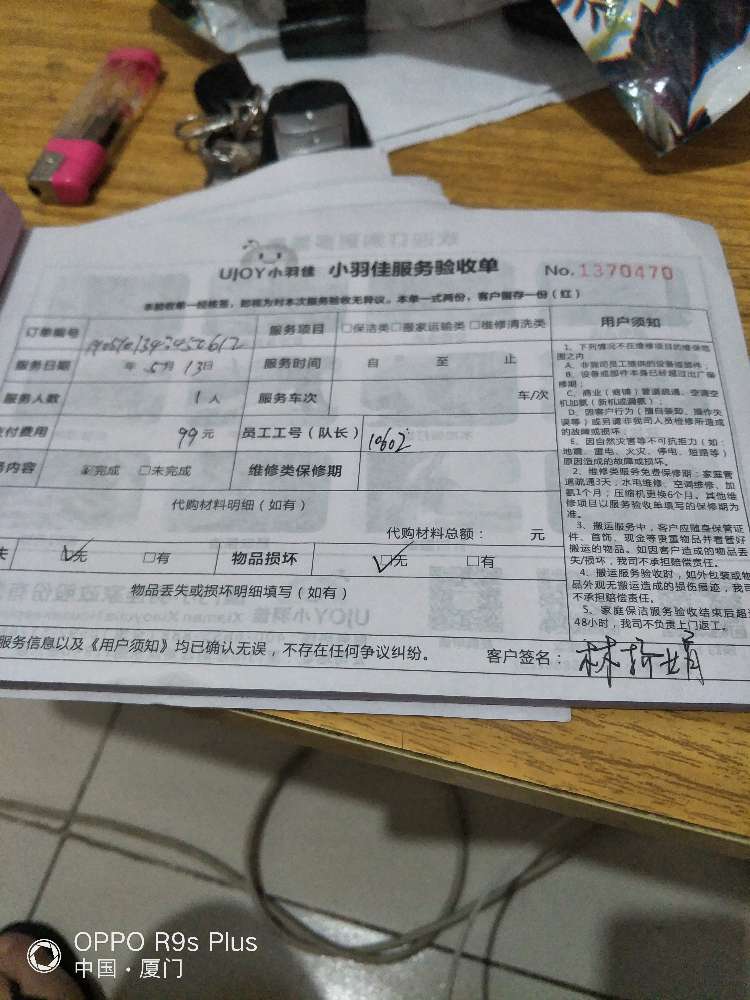 UJOY小羽佳 小羽佳服务验收单 No.1370470
本验收单一经核签,即视为对本次服务验收无异议。本单一式两份,客户留存一份(红)
订单编号 服务项目 □保洁类□搬家运输类□维修清洗类 用户须知
服务日期 年5月13日 服务时间 自 至 止
服务人数 1人 服务车次 车/次
付费用 99元 员工工号(队长) 10602
内容 完成 □未完成 维修类保修期
代购材料明细(如有)
代购材料总额: 元
失 无 □有 物品损坏 □无 □有
物品丢失或损坏明细填写(如有)
服务信息以及《用户须知》均已确认无误,不存在任何争议纠纷。 客户签名:
1、下列情况不在维修项目的维保范
围之内
A、非我司员工提供的设备或部件;
B、设备或部件本身已经超过出厂保
修期;
C、商业(店铺)管道疏通、空调空
机加氨(新机或漏氨);
D、因客户行为(擅自装卸、操作失
误等)或另请非我司人员检修所造成
的故障或损坏;
E、因自然灾害等不可抗拒力(如:
地震、雷电、火灾、停电、短路等)
原因造成的故障或损坏。
2、维修类服务免费保修期:家庭管
道疏通3天;水电维修、空调维修、加
氨1个月;压缩机更换6个月。其他维
修项目以服务验收单填写的保修期为
准。
3、搬运服务中,客户应随身保管证
件、首饰、现金等贵重物品并看管好
搬运的物品。如因客户造成的物品丢
失/损坏,我司不承担赔偿责任。
4、搬运服务验收时,如外包装或物
品外观无搬运造成的损伤痕迹,我司
不承担赔偿责任。
5、家庭保洁服务验收结束后超
48小时,我司不负责上门返工。
OPPO R9s Plus
中国·厦门